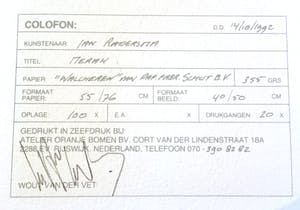 COLOFON: D.D. 14/10/1992
KUNSTENAAR: IAN RADERSMA
TITEL: MERAK
PAPIER: "WALCHEREN" VAN PAP. FABR. SCHUT B.V. 355 GRS
FORMAAT PAPIER: 55/76 CM FORMAAT BEELD: 40/50 CM
OPLAGE: 100 X E.A. X DRUKGANGEN 20 X
GEDRUKT IN ZEEFDRUK BIJ:
ATELIER ORANJE BOMEN BV. CORT VAN DER LINDENSTRAAT 18A
2288 EV RIJSWIJK, NEDERLAND, TELEFOON 070 - 390 82 82
WOUT VAN DER VET